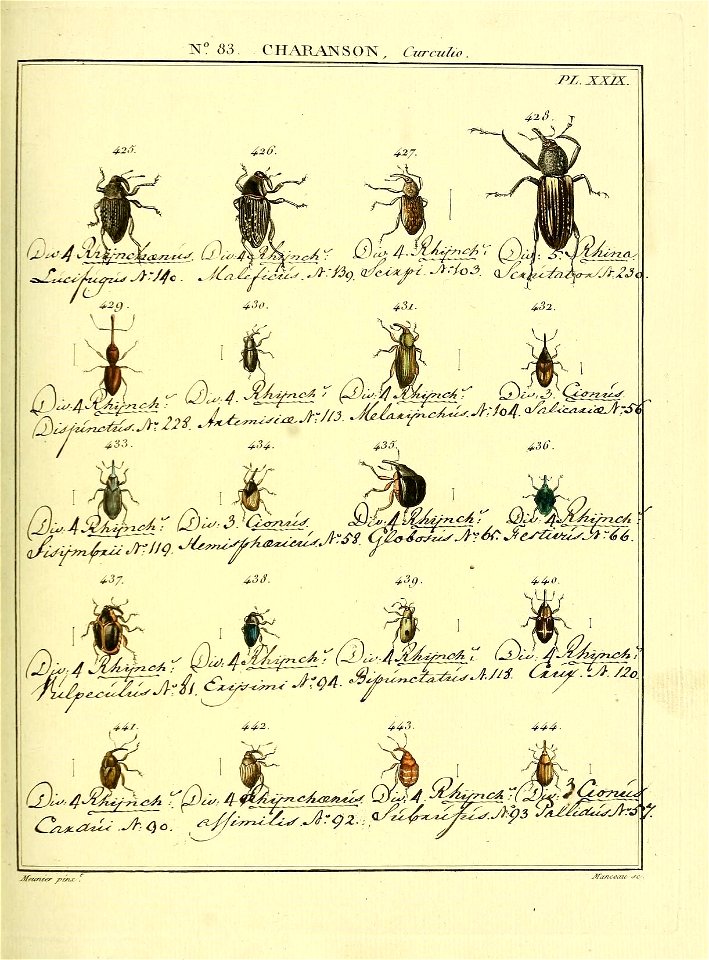 N.º 83. CHARANSON, Curculio.
PL. XXIX.
425. 426. 427. 428.
Div 4 Rhÿnchænus. Div. 4 Rhÿnch.ˢ Div. 4. Rhÿnch.ˢ Div: 5. Rhina.
Lucifugus N.º 140. Maleficus. N.º 139. Scirpi. N.º 103. Scrutator N. 230.
429. 430. 431. 432.
Div. 4 Rhÿnch.ˢ Div. 4. Rhÿnch.ˢ Div. 4 Rhÿnch.ˢ Div. 3. Cionus
Dispunctus. N.º 228. Artemisiæ N.º 113. Melarÿnchus. N.º 104. Salicariæ N.º 56
433. 434. 435. 436.
Div. 4 Rhÿnch.ˢ Div: 3. Cionus. Div. 4 Rhÿnch.ˢ Div. 4. Rhÿnch.ˢ
Sisÿmbrii N.º 119. Hemisphæricus N.º 58. Globosus N.º 65. Festivus N.º 66.
437. 438. 439. 440.
Div. 4 Rhÿnch.ˢ Div. 4 Rhÿnch.ˢ Div. 4 Rhÿnch.ˢ Div. 4. Rhÿnch.ˢ
Vulpeculus N.º 81. Erÿsimi N.º 94. Bipunctatus N. 118. Crux. N. 120.
441. 442. 443. 444.
Div. 4 Rhÿnch.ˢ Div. 4 Rhÿnchænus. Div. 4. Rhÿnch.ˢ Div: 3 Cionus.
Cardui N. 90. assimilis N.º 92. Subrufus. N.º 93 Pallidus N.º 57.
Meunier pinx.ᵗ Manceau sc.